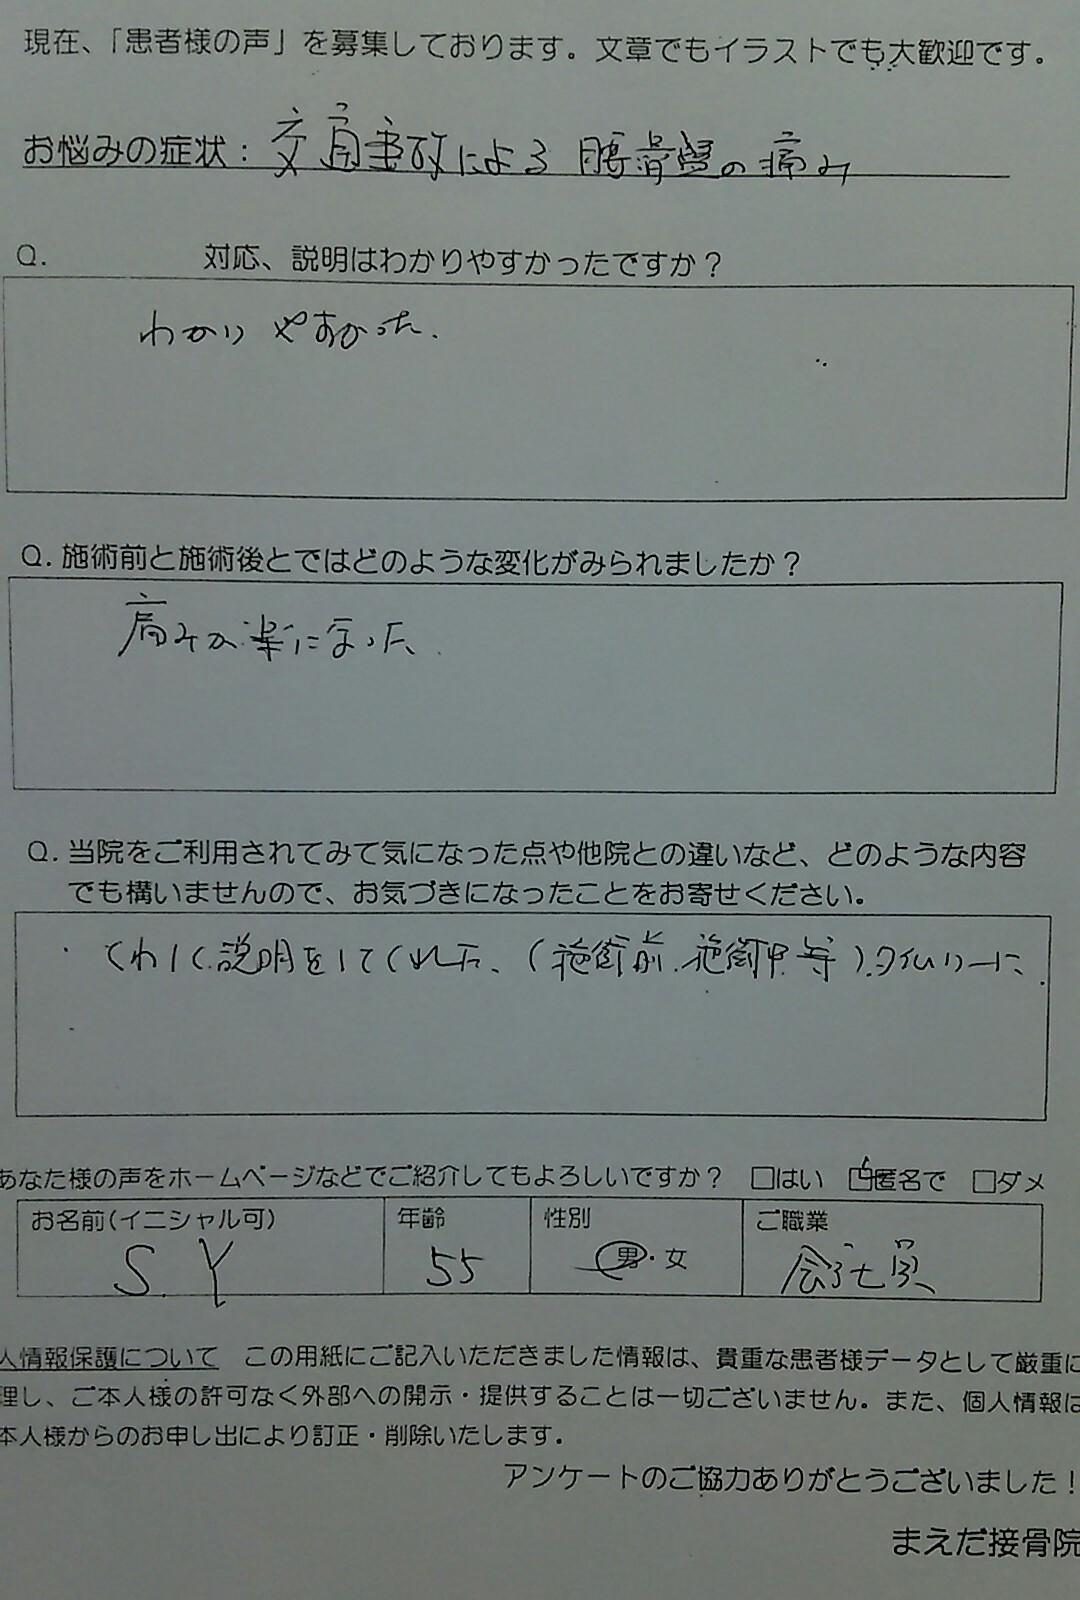 現在、「患者様の声」を募集しております。文章でもイラストでも大歓迎です。
お悩みの症状：交通事故による腰骨盤の痛み
Q.　対応、説明はわかりやすかったですか？
わかりやすかった.
Q. 施術前と施術後とではどのような変化がみられましたか？
痛みが楽になった
Q. 当院をご利用されてみて気になった点や他院との違いなど、どのような内容
でも構いませんので、お気づきになったことをお寄せください。
くわしく説明をしてくれた、(施術前.施術中等).タイムリーに.
あなた様の声をホームページなどでご紹介してもよろしいですか？ □はい ☑匿名で □ダメ
お名前(イニシャル可) 年齢 性別 ご職業
S.Y 55 男・女 会社員
人情報保護について　この用紙にご記入いただきました情報は、貴重な患者様データとして厳重に
理し、ご本人様の許可なく外部への開示・提供することは一切ございません。また、個人情報は
本人様からのお申し出により訂正・削除いたします。
アンケートのご協力ありがとうございました！
まえだ接骨院